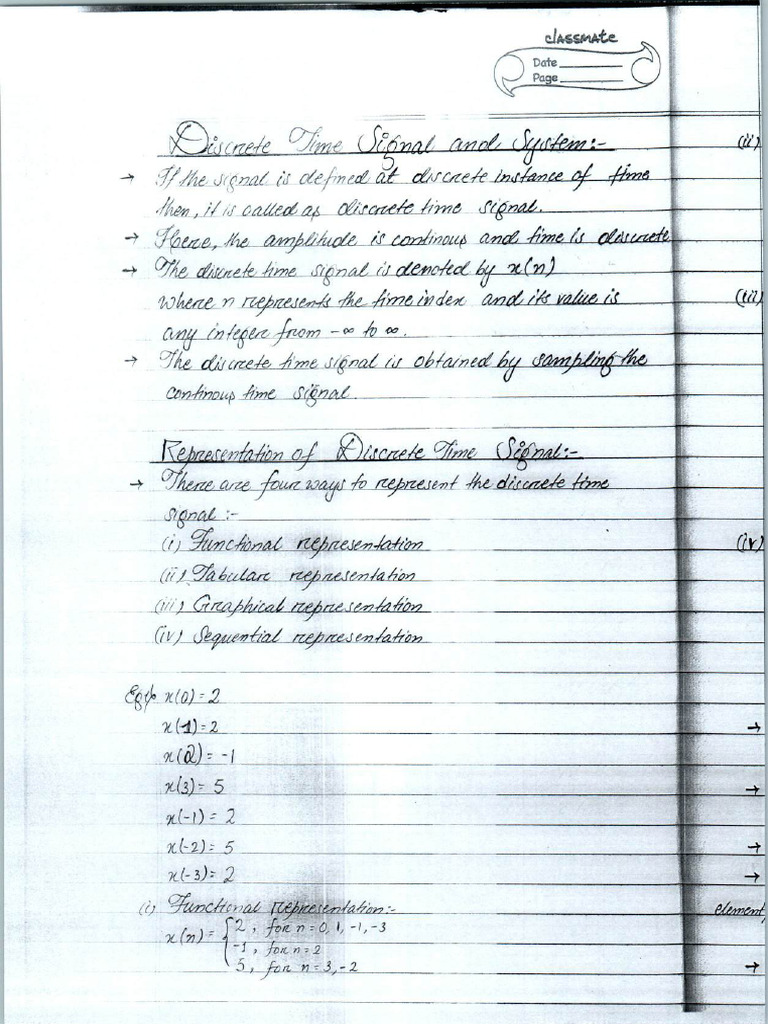 classmate
Date
Page
Discrete Time Signal and System:-
→ If the signal is defined at discrete instance of time
then, it is called as discrete time signal.
→ Here, the amplitude is continous and time is discrete
→ The discrete time signal is denoted by x(n)
where n represents the time index and its value is
any integer from -∞ to ∞.
→ The discrete time signal is obtained by sampling the
continous time signal.
Representation of Discrete Time Signal:-
→ There are four ways to represent the discrete time
signal :-
(i) Functional representation
(ii) Tabular representation
(iii) Graphical representation
(iv) Sequential representation
Eg:- x(0) = 2
x(1) = 2
x(2) = -1
x(3) = 5
x(-1) = 2
x(-2) = 5
x(-3) = 2
(i) Functional Representation:-
x(n) = { 2, for n = 0, 1, -1, -3
-1, for n = 2
5, for n = 3, -2
(ii)
(iii)
(iv)
→
→
→
→
element
→